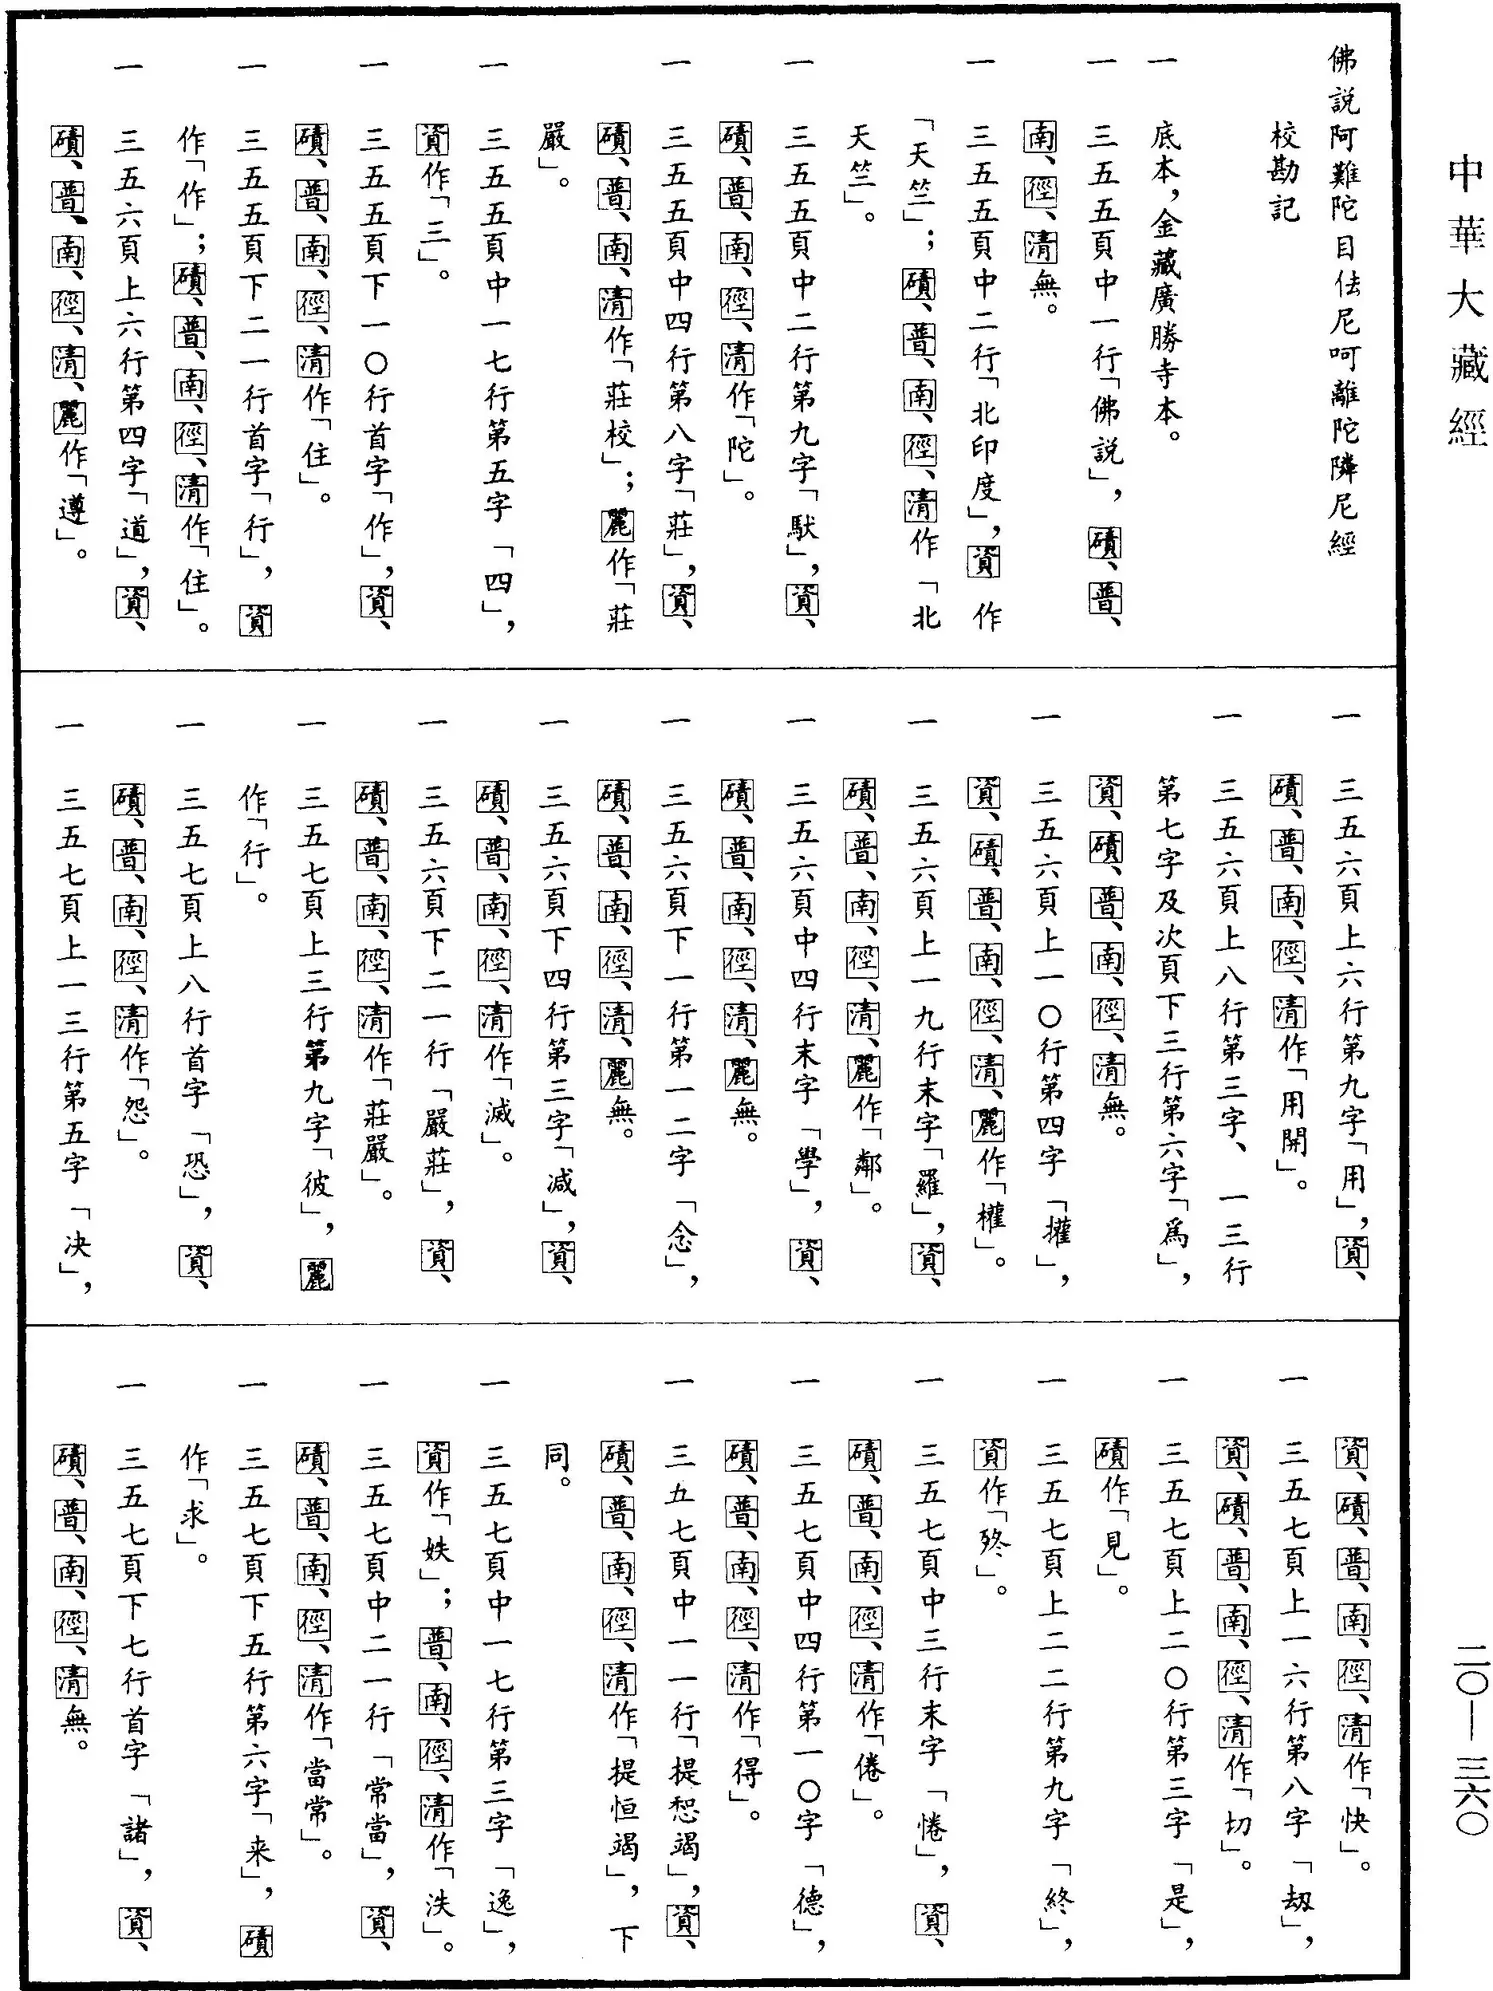 中華大藏經
二〇—三六〇
佛説阿難陀目佉尼呵離陀隣尼經
校勘記
一 底本，金藏廣勝寺本。
一 三五五頁中一行「佛説」，磧、普、
南、徑、清無。
一 三五五頁中二行「北印度」，資作
「天竺」；磧、普、南、徑、清作「北
天竺」。
一 三五五頁中二行第九字「馱」，資、
磧、普、南、徑、清作「陀」。
一 三五五頁中四行第八字「莊」，資、
磧、普、南、清作「莊校」；麗作「莊
嚴」。
一 三五五頁中一七行第五字「四」，
資作「三」。
一 三五五頁下一〇行首字「作」，資、
磧、普、南、徑、清作「住」。
一 三五五頁下二一行首字「行」，資
作「作」；磧、普、南、徑、清作「住」。
一 三五六頁上六行第四字「道」，資、
磧、普、南、徑、清、麗作「遵」。
一 三五六頁上六行第九字「用」，資、
磧、普、南、徑、清作「用開」。
一 三五六頁上八行第三字、一三行
第七字及次頁下三行第六字「爲」，
資、磧、普、南、徑、清無。
一 三五六頁上一〇行第四字「擢」，
資、磧、普、南、徑、清、麗作「權」。
一 三五六頁上一九行末字「羅」，資、
磧、普、南、徑、清、麗作「鄰」。
一 三五六頁中四行末字「學」，資、
磧、普、南、徑、清、麗無。
一 三五六頁下一行第一二字「念」，
磧、普、南、徑、清、麗無。
一 三五六頁下四行第三字「減」，資、
磧、普、南、徑、清作「滅」。
一 三五六頁下二一行「嚴莊」，資、
磧、普、南、徑、清作「莊嚴」。
一 三五七頁上三行第九字「彼」，麗
作「行」。
一 三五七頁上八行首字「恐」，資、
磧、普、南、徑、清作「怨」。
一 三五七頁上一三行第五字「决」，
資、磧、普、南、徑、清作「快」。
一 三五七頁上一六行第八字「劫」，
資、磧、普、南、徑、清作「切」。
一 三五七頁上二〇行第三字「是」，
磧作「見」。
一 三五七頁上二二行第九字「終」，
資作「殁」。
一 三五七頁中三行末字「惓」，資、
磧、普、南、徑、清作「倦」。
一 三五七頁中四行第一〇字「德」，
磧、普、南、徑、清作「得」。
一 三五七頁中一一行「提惒竭」，資、
磧、普、南、徑、清作「提恒竭」，下
同。
一 三五七頁中一七行第三字「逸」，
資作「妷」；普、南、徑、清作「泆」。
一 三五七頁中二一行「常當」，資、
磧、普、南、徑、清作「當常」。
一 三五七頁下五行第六字「来」，磧
作「求」。
一 三五七頁下七行首字「諸」，資、
磧、普、南、徑、清無。